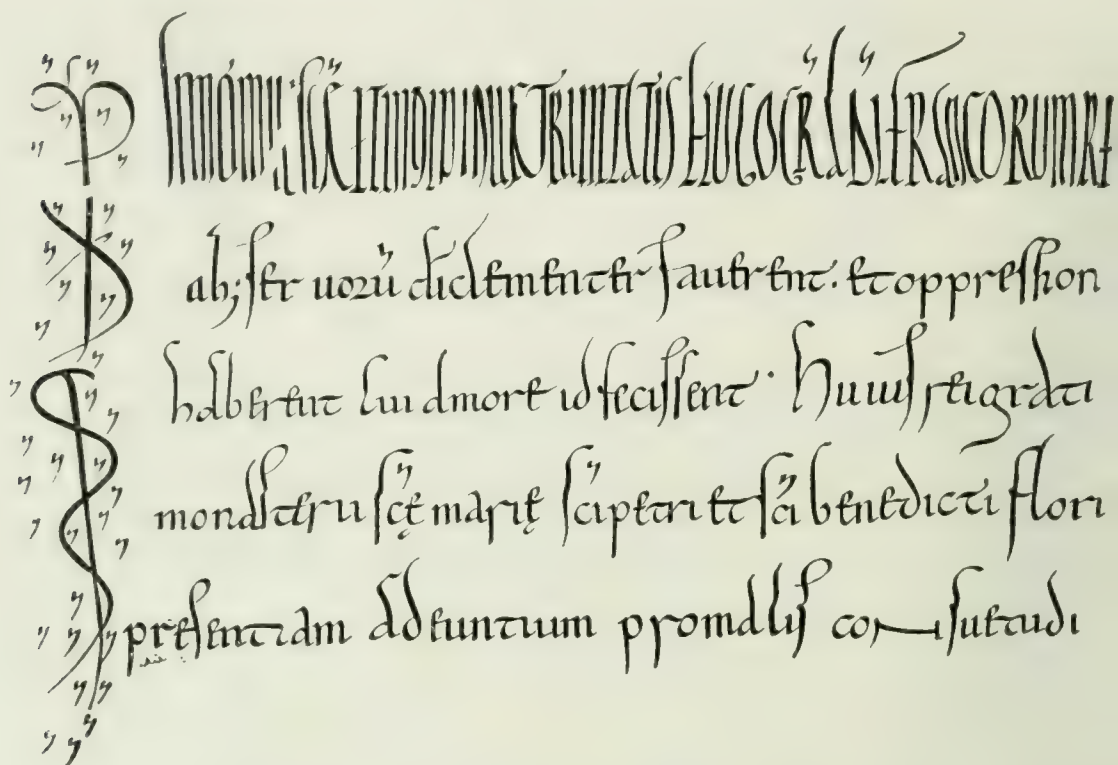 In nomine scē et individuę trinitatis hugo grā dī francorum re
ab; servorū di clementer faverent. et oppression
haberent cui amore id fecissent. Huius rei grati
monasterii scę marię sci petri et sci benedicti flori
pręsentiam adeuntium pro malis consuetudi